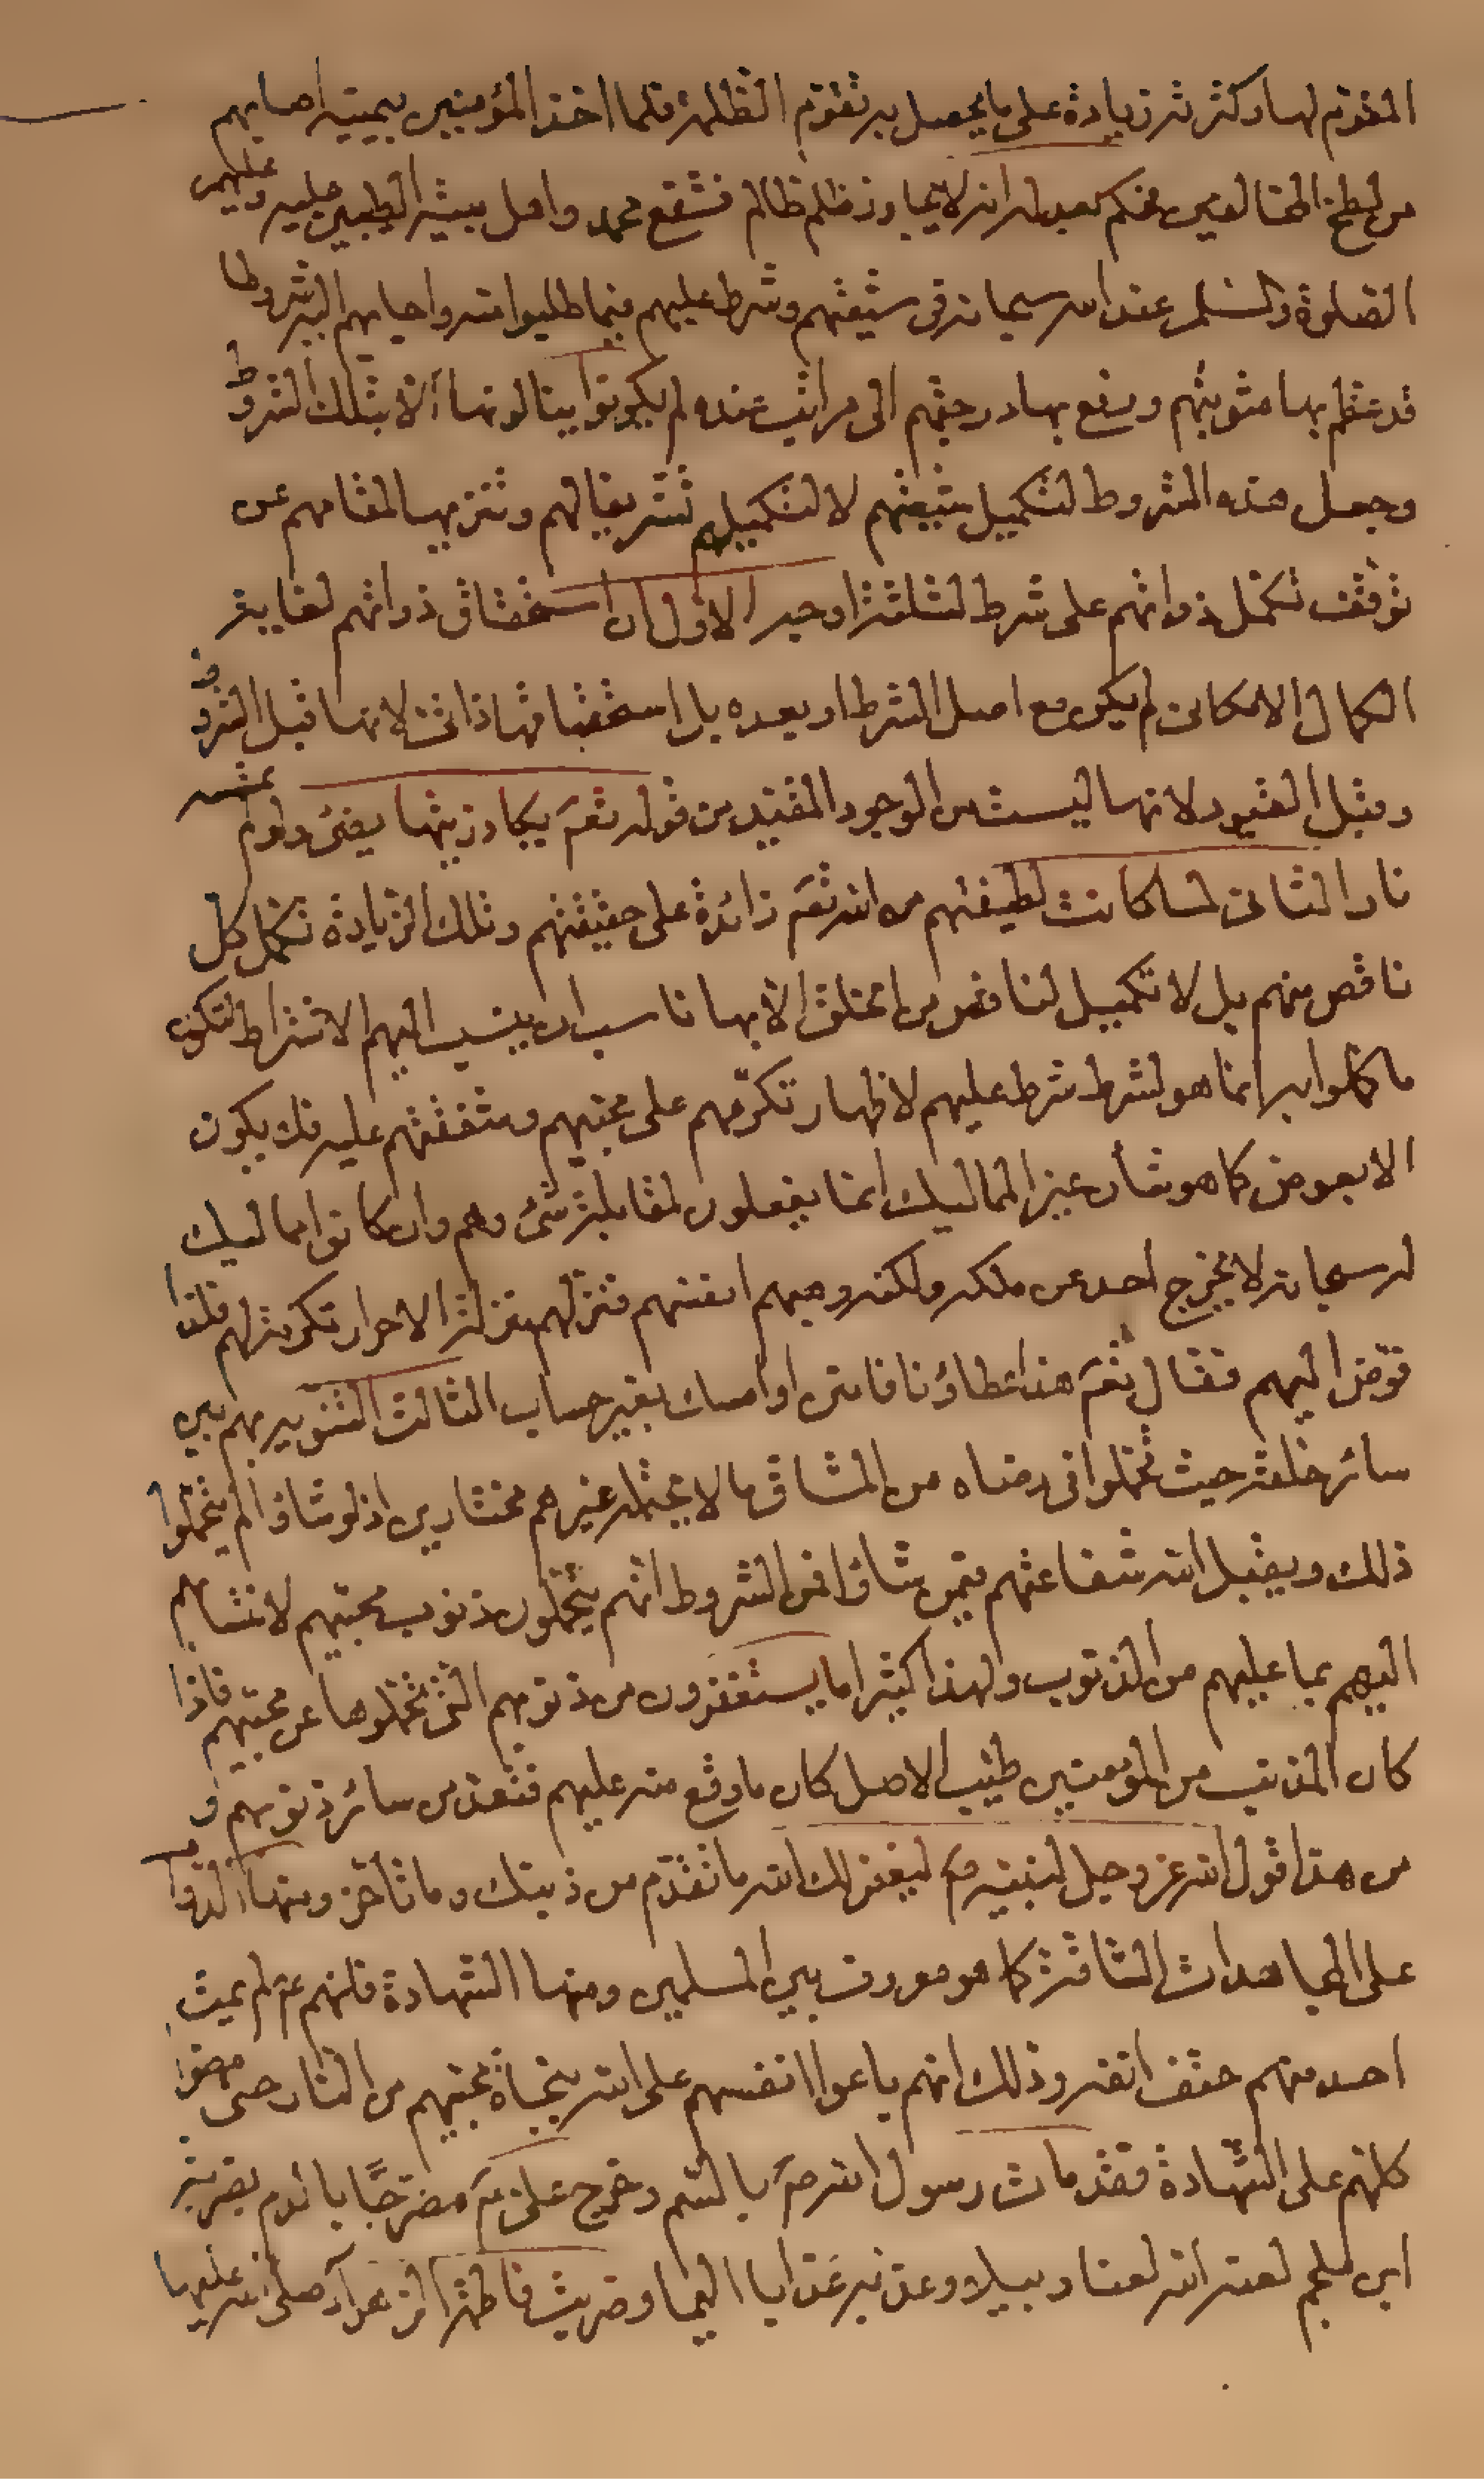 المقوّم لها وكثرته زيادة على ما يحصل به تقوّم الظلمة فلما اخذ المؤمنين بميتة اصابهم
من لطخ المخالفين فحكم بعدله انه لا يجاوز ظلم ظالم فشفع محمد واهل بيته الطيبين عليه وعليهم
الصلوة والسلم عند الله سبحانه في شيعتهم وشرط عليهم فيما طلبوا منه واجابهم اليه شروطا
قد عظم بها مثوبتهم ورفع بها درجتهم الى مراتب عنده لم يكونوا ينالونها الا بتلك الشروط
وجعل هذه الشروط لتكميل شيعتهم لا لتكميلهم تشريفا لهم وتنزيها لمقامهم عن
توقف تكمل ذواتهم على شرط لثلثة اوجه الاول ان استحقاق ذواتهم لغاية
الكمال الامكاني لم يكن مع اصل الشرط او بعده بل استحقاقها ذاتي لانها قبل الشروط
وقبل القيود لانها ليست من الوجود المقيد من قوله تعم يكاد زيتها يضيئ ولو لم تمسسه
نار الثاني لما كانت لطيفتهم من الله تعم زائدة على حقيقتهم وتلك الزيادة تكمل كل
ناقص منهم بل لا تكميل لناقص من الخلق الا بها ناسب ان ينسب اليهم الاشتراط لتكون
ما كملوا به انما هو لشرط شرط عليهم لاظهار تكرمهم على محبيهم وشفقتهم عليه فلا يكون
الا بعوض كما هو شأن غير المماليك انما يفعلون لمقابلة شئ وهم وان كانوا مماليك
له سبحانه لا يخرج احد عن ملكه ولكنه وهبهم انفسهم فنزلهم منزلة الاحرار تكرمة لهم فلذا
فوّض اليهم فقال تعم هذا عطاؤنا فامنن او امسك بغير حساب الثالث التنويه بهم بين
سائر خلقه حيث تحملوا في رضاه من المشاق ما لا يحتمله غيرهم مختارين اذ لو شاؤا لم يتحملوا
ذلك ويقبل الله شفاعتهم فيمن شاؤا فمن الشروط انهم يتحملون ذنوب محبيهم لانتسابهم
اليهم بما عليهم من الذنوب ولهذا كثيرا ما يستغفرون من ذنوبهم التي تحملوها عن محبيهم فاذا
كان المذنب من المؤمنين طيب الاصل كان ما وقع منه عليهم فتعد من سائر ذنوبهم و
من هذا قول الله عز وجل لنبيه ص ليغفر لك الله ما تقدم من ذنبك وما تأخر ومنها القوا
على المجاهدات الشاقة كما هو معروف بين المسلمين ومنها الشهادة فلهم ع لم يمت
احد منهم حتف انفه وذلك انهم باعوا انفسهم على الله بنجاة محبيهم من النار حتى مضوا
كلهم على الشهادة فقد مات رسول الله ص بالسم وخرج علي ع مضرجًا بالدم بضربة
ابن ملجم لعنه الله لعنا وبيلا وعذبه عذابا اليما وضربت فاطمة الزهراء صلى الله عليها